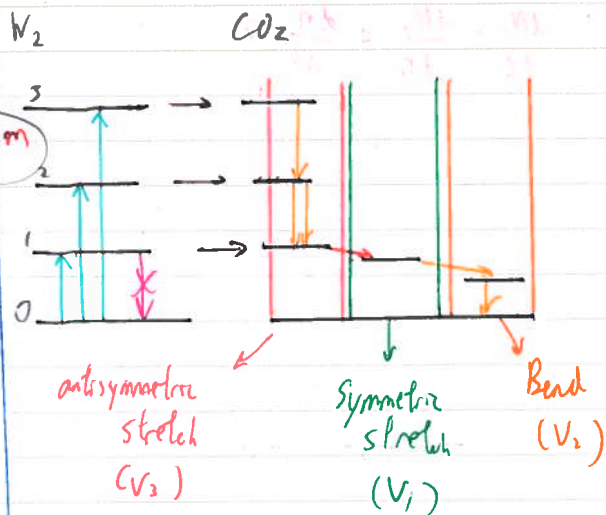 N₂ CO₂
3
m
2
1
0
antisymmetric
stretch
(V₃)
Symmetric
stretch
(V₁)
Bend
(V₂)